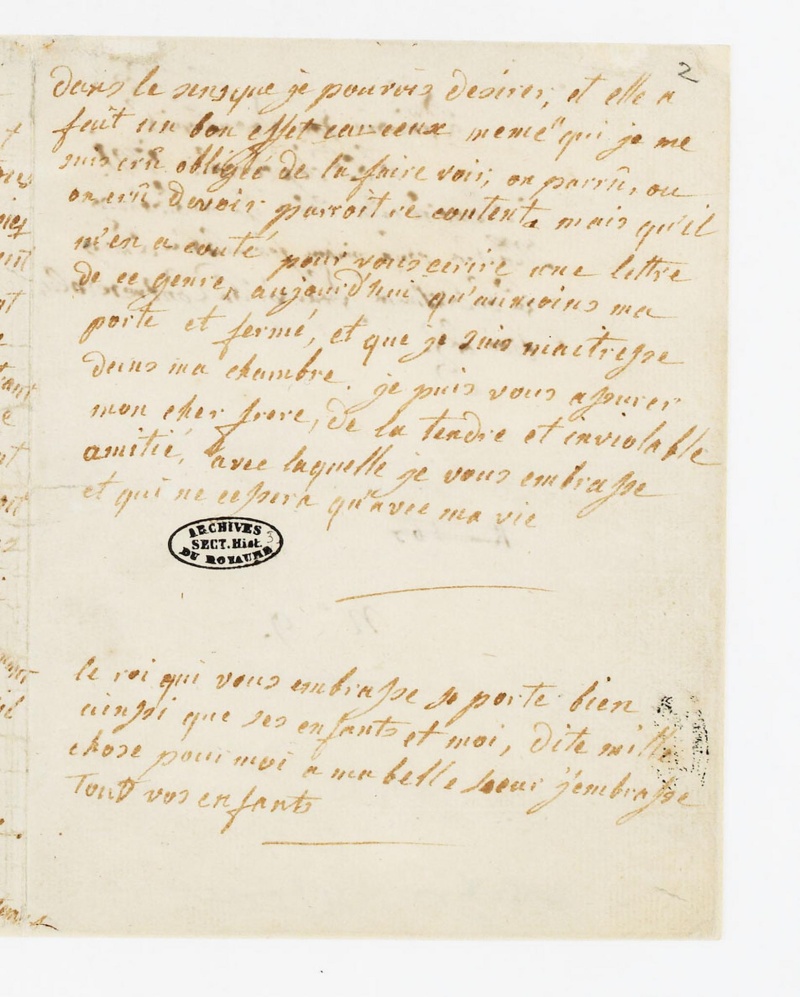 2
dans le sens que je pourois desirer, et elle a
fait un bon effet car ceux meme qui je me
suis crû obligée de la faire voir, on parru, ou
on crû devoir parroitre content, mais qu'il
m'en a couté pour vous ecrire une lettre
de ce genre, aujourd'hui qu'aumoins ma
porte et fermé, et que je suis maitresse
dans ma chambre. je puis vous assurer
mon cher frere, de la tendre et inviolable
amitié, avec laquelle je vous embrasse
et qui ne cessera qu'avec ma vie
ARCHIVES
SECT. Hist.
DU ROYAUME
le roi qui vous embrasse se porte bien
ainssi que ses enfants et moi, dite mille
chose pour moi a ma belle soeur j'embrasse
Tout vos enfants